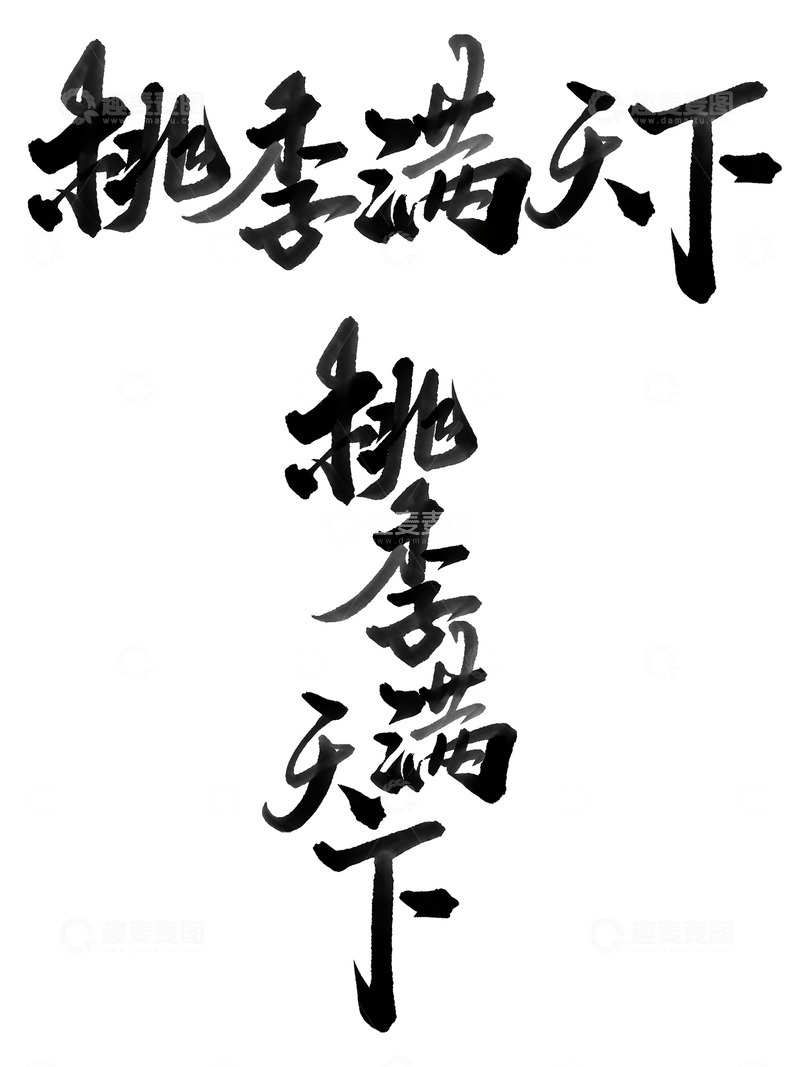 桃李满天下
桃
李
满
天
下
趣麦麦图 趣麦麦图